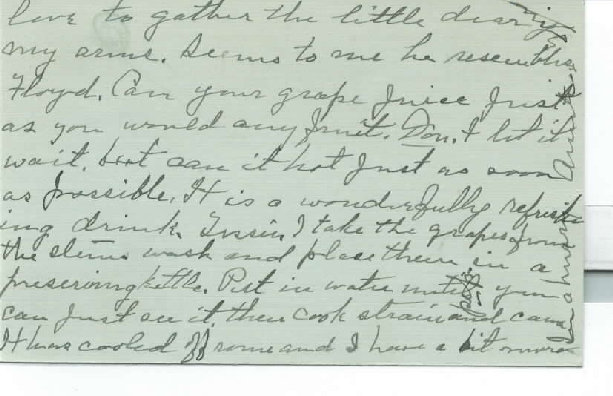 love to gather the little dear in
my arms. Seems to me he resembles
Floyd. Can your grape Juice Just
as you would any fruit. Don,t let it
wait. but can it hot Just as soon
as possible. It is a wonderfully refresh
ing drink. I take the grapes from
the stems wash and place them in a
preserving kettle. Put in water until you
can Just see it. then cook strain and can
It has cooled off some and I have a bit more